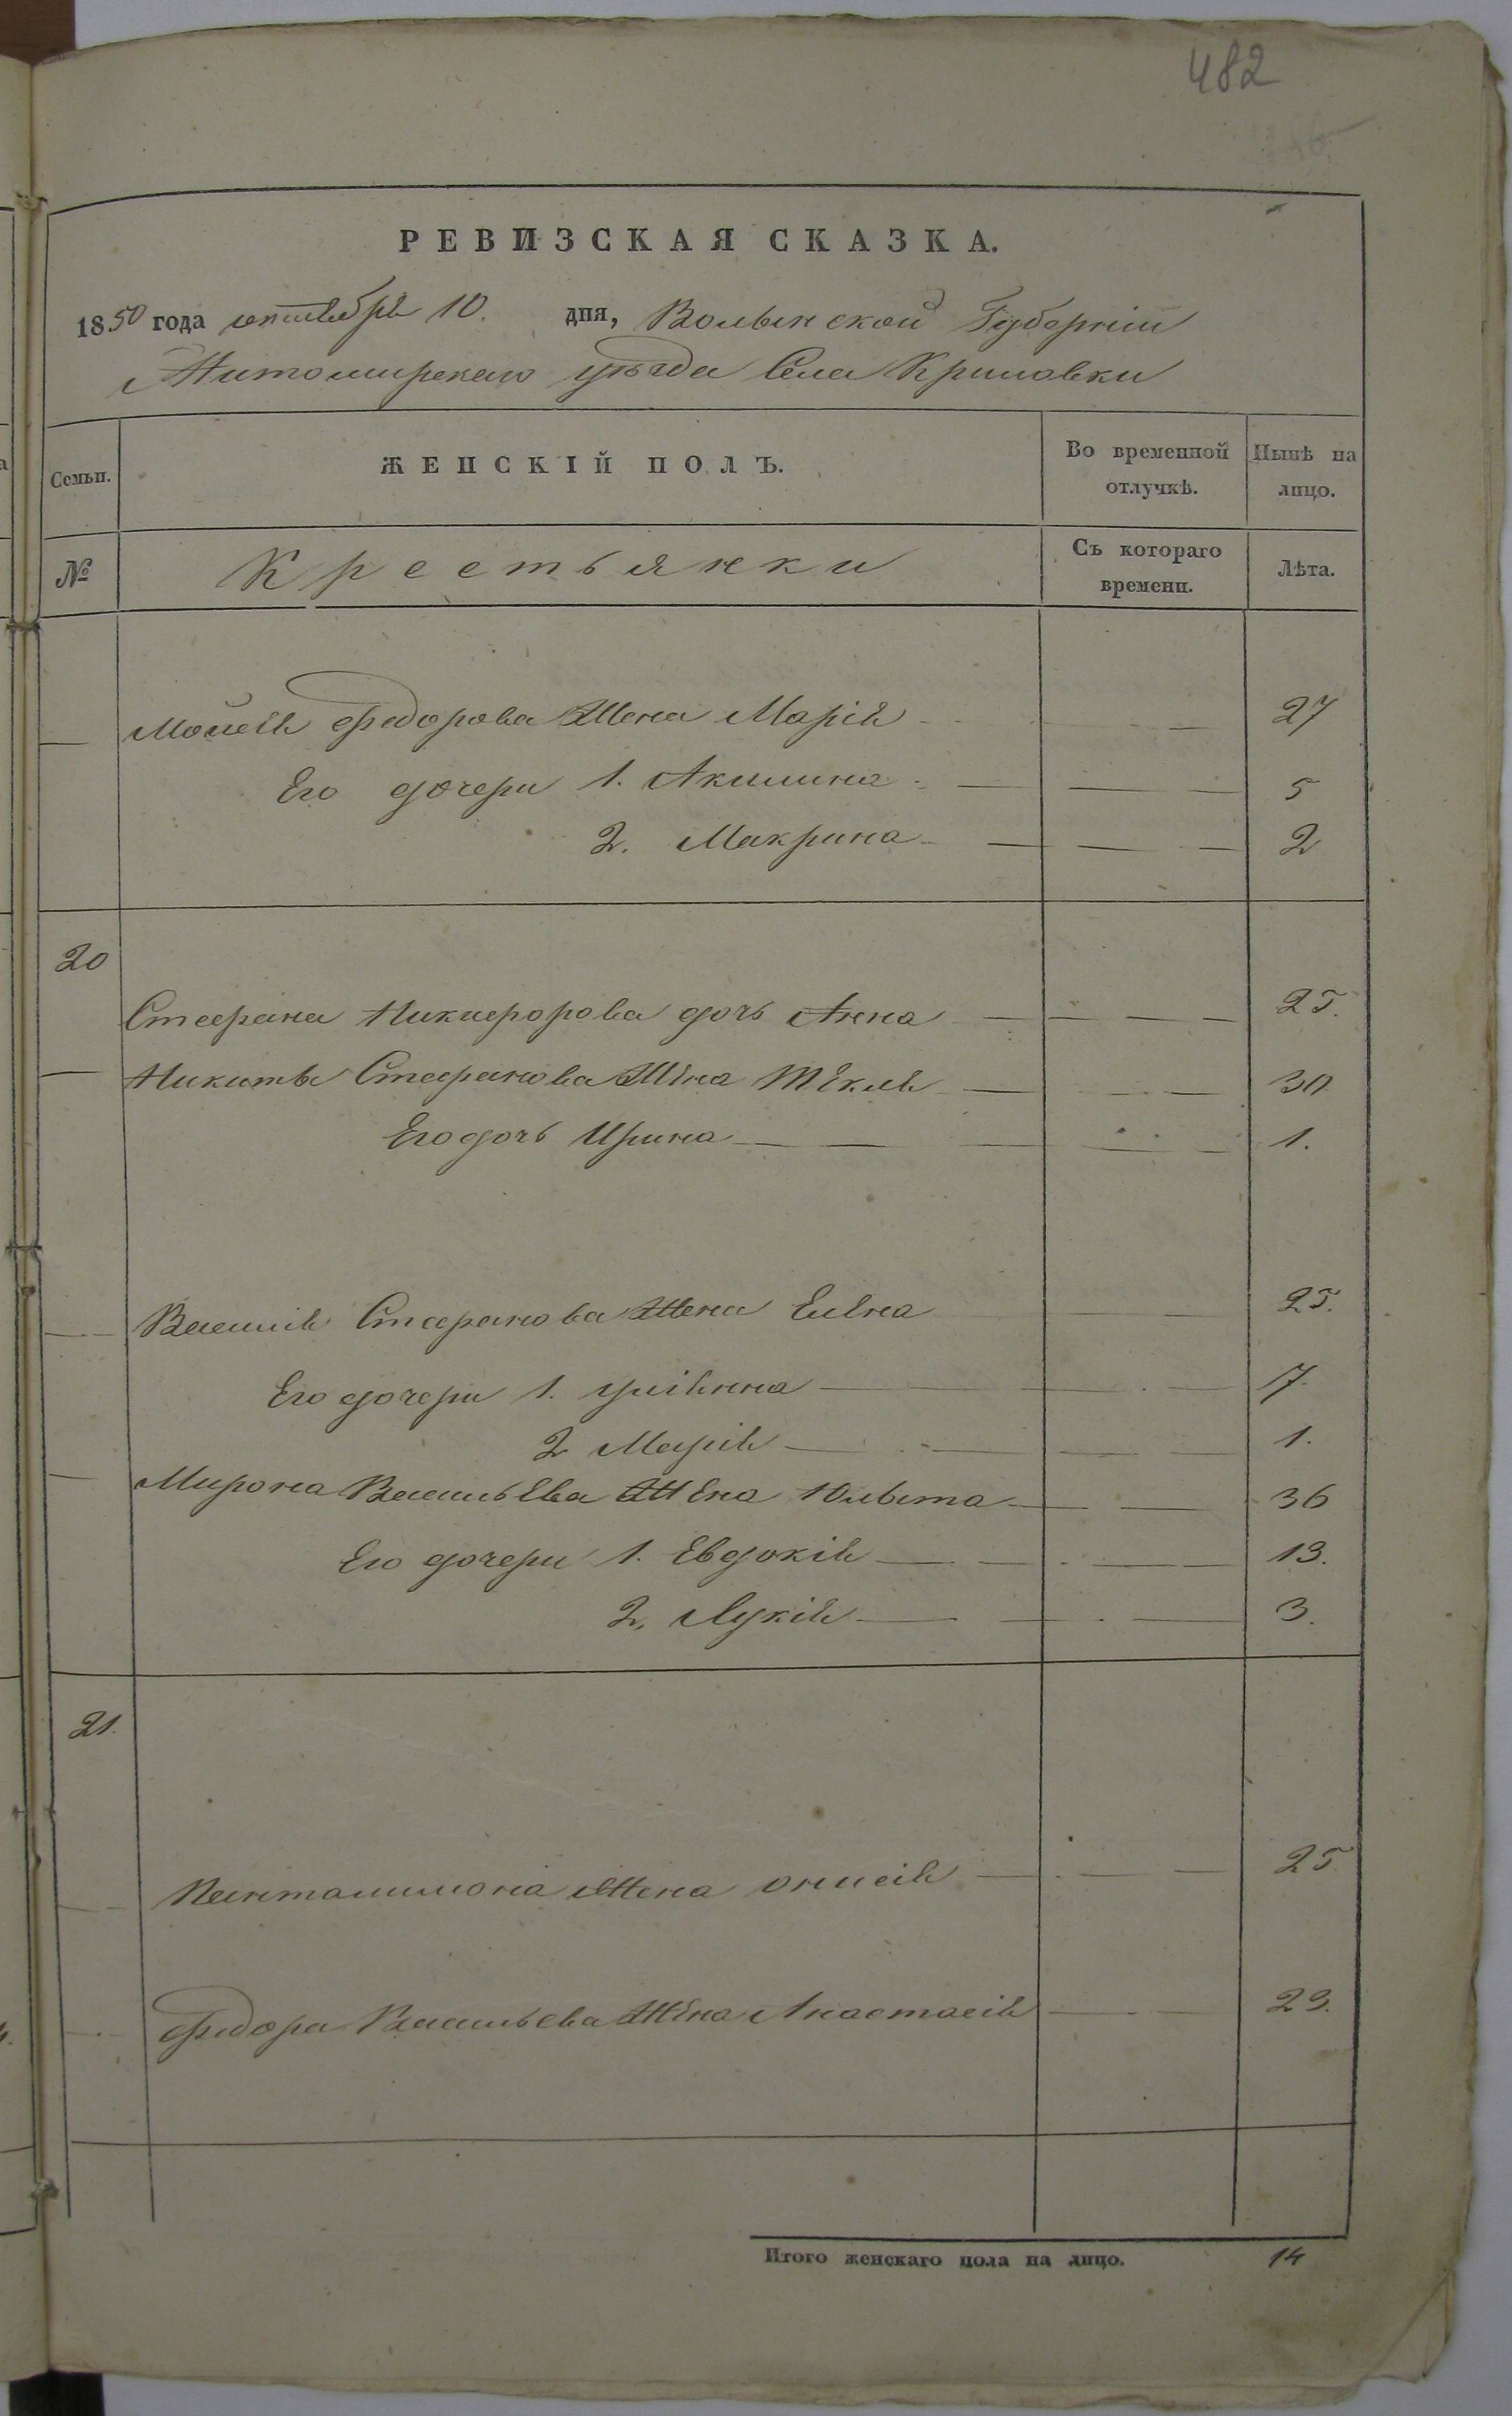 482
РЕВИЗСКАЯ СКАЗКА.
1850 года октября 10. дня, Волынской Губерніи
Житомирскаго уѣзда Села Крыловки
Семьи. ЖЕНСКІЙ ПОЛЪ. Во временной отлучкѣ. Нынѣ на лицо.
№ Крестьянки Съ котораго времени. Лѣта.
Мойсея Федорова Жена Марія 27
Его дочери 1. Акилина 5
2. Макрина 2
20
Стефана Никифорова дочь Анна 25.
Никиты Стефанова Жена Текля 30
Его дочь Ирина 1.
Василія Стефанова Жена Елена 25.
Его дочери 1. 7.
2 Марія 1.
Мирона Васильева Жена Юлыта 36
Его дочери 1. Евдокія 13.
2. Лукія 3.
21.
Жена Онисія 25
Федора Васильева Жена Анастасія 23.
Итого женскаго пола на лицо. 14